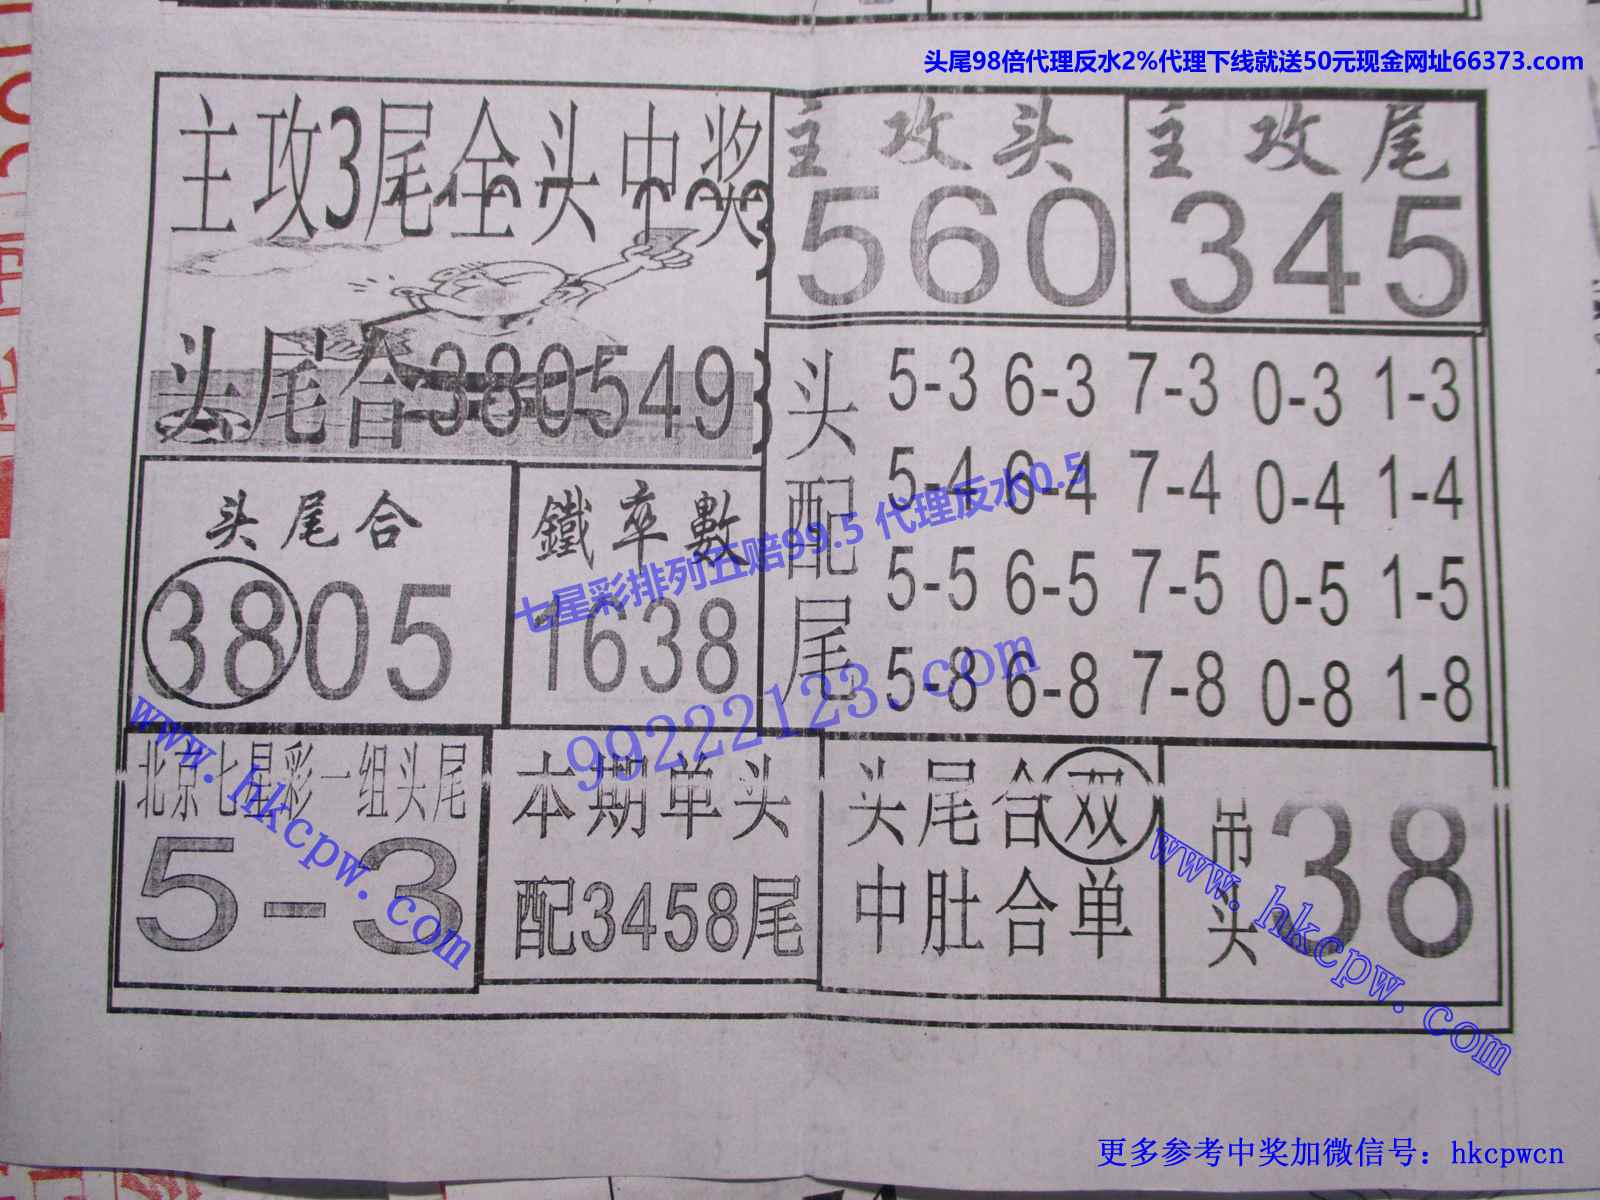 头尾98倍代理反水2%代理下线就送50元现金网址66373.com
主攻3尾全头中奖
头尾合380549
主攻头
560
主攻尾
345
头配尾
5-3 6-3 7-3 0-3 1-3
5-4 6-4 7-4 0-4 1-4
5-5 6-5 7-5 0-5 1-5
5-8 6-8 7-8 0-8 1-8
头尾合
3805
鐵率數
1638
七星彩排列五赔99.5 代理反水0.5
99222123.com
www.hkcpw.com
北京七星彩一组头尾
5-3
本期单头
配3458尾
头尾合双
中肚合单
吊头
38
www.hkcpw.com
更多参考中奖加微信号：hkcpwcn